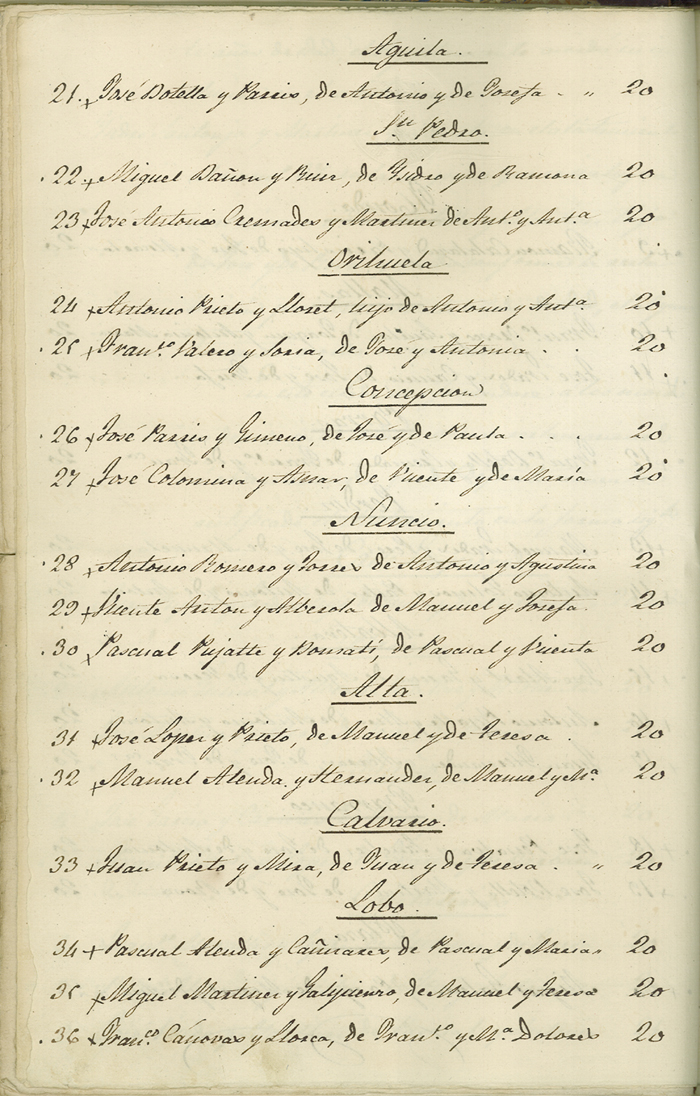 Aguila.
21. + José Botella y Parres, de Antonio y de Josefa . " 20
Sn. Pedro.
22. + Miguel Bañon y Ruiz, de Ysidro y de Ramona 20
23 + José Antonio Cremades y Martinez de Anto. y Anta. 20
Orihuela
24 + Antonio Prieto y Lloret, hijo de Antonio y Anta. 20
25 + Franco. Valero y Soria, de José y Antonia . . 20
Concepcion
26 + José Parres y Gimeno, de José y de Paula . . . 20
27 + José Colomina y Asnar, de Vicente y de María 20
Nuncio.
28 + Antonio Romero y Torres de Antonio y Agustina 20
29 + Vicente Anton y Alberola de Manuel y Josefa. 20
30 + Pascual Pujalte y , de Pascual y Vicenta 20
Alta.
31 + José Lopez y Prieto, de Manuel y de Teresa . . 20
32 + Manuel Alenda y Hernandez, de Manuel y Ma. 20
Calvario.
33 + Juan Prieto y Mira, de Juan y de Teresa . " 20
Lobo.
34 + Pascual Alenda y Cañizares, de Pascual y Maria 20
35 + Miguel Martinez y , de Manuel y Teresa 20
36 + Franco. Cánovas y Llorca, de Franco. y Ma. Dolores 20